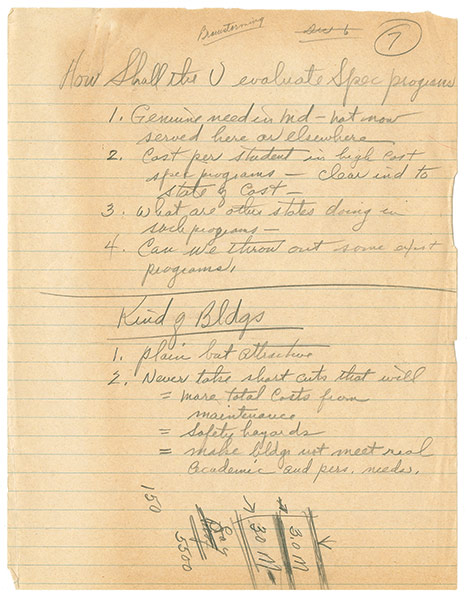 Brainstorming
Dec 6
7
How Shall the U evaluate Spec programs
1. Genuine need in Md - not now
served here or elsewhere
2. Cost per student in high cost
spec programs - clear ind to
state of cost -
3. What are other states doing in
such programs -
4. Can we throw out some exist
programs.
Kind of Bldgs
1. plain but attractive
2. Never take short cuts that will
= more total costs from
maintenance
= Safety hazards
= make bldgs not meet real
academic and pers. needs.
150
5500
30
3.0 M